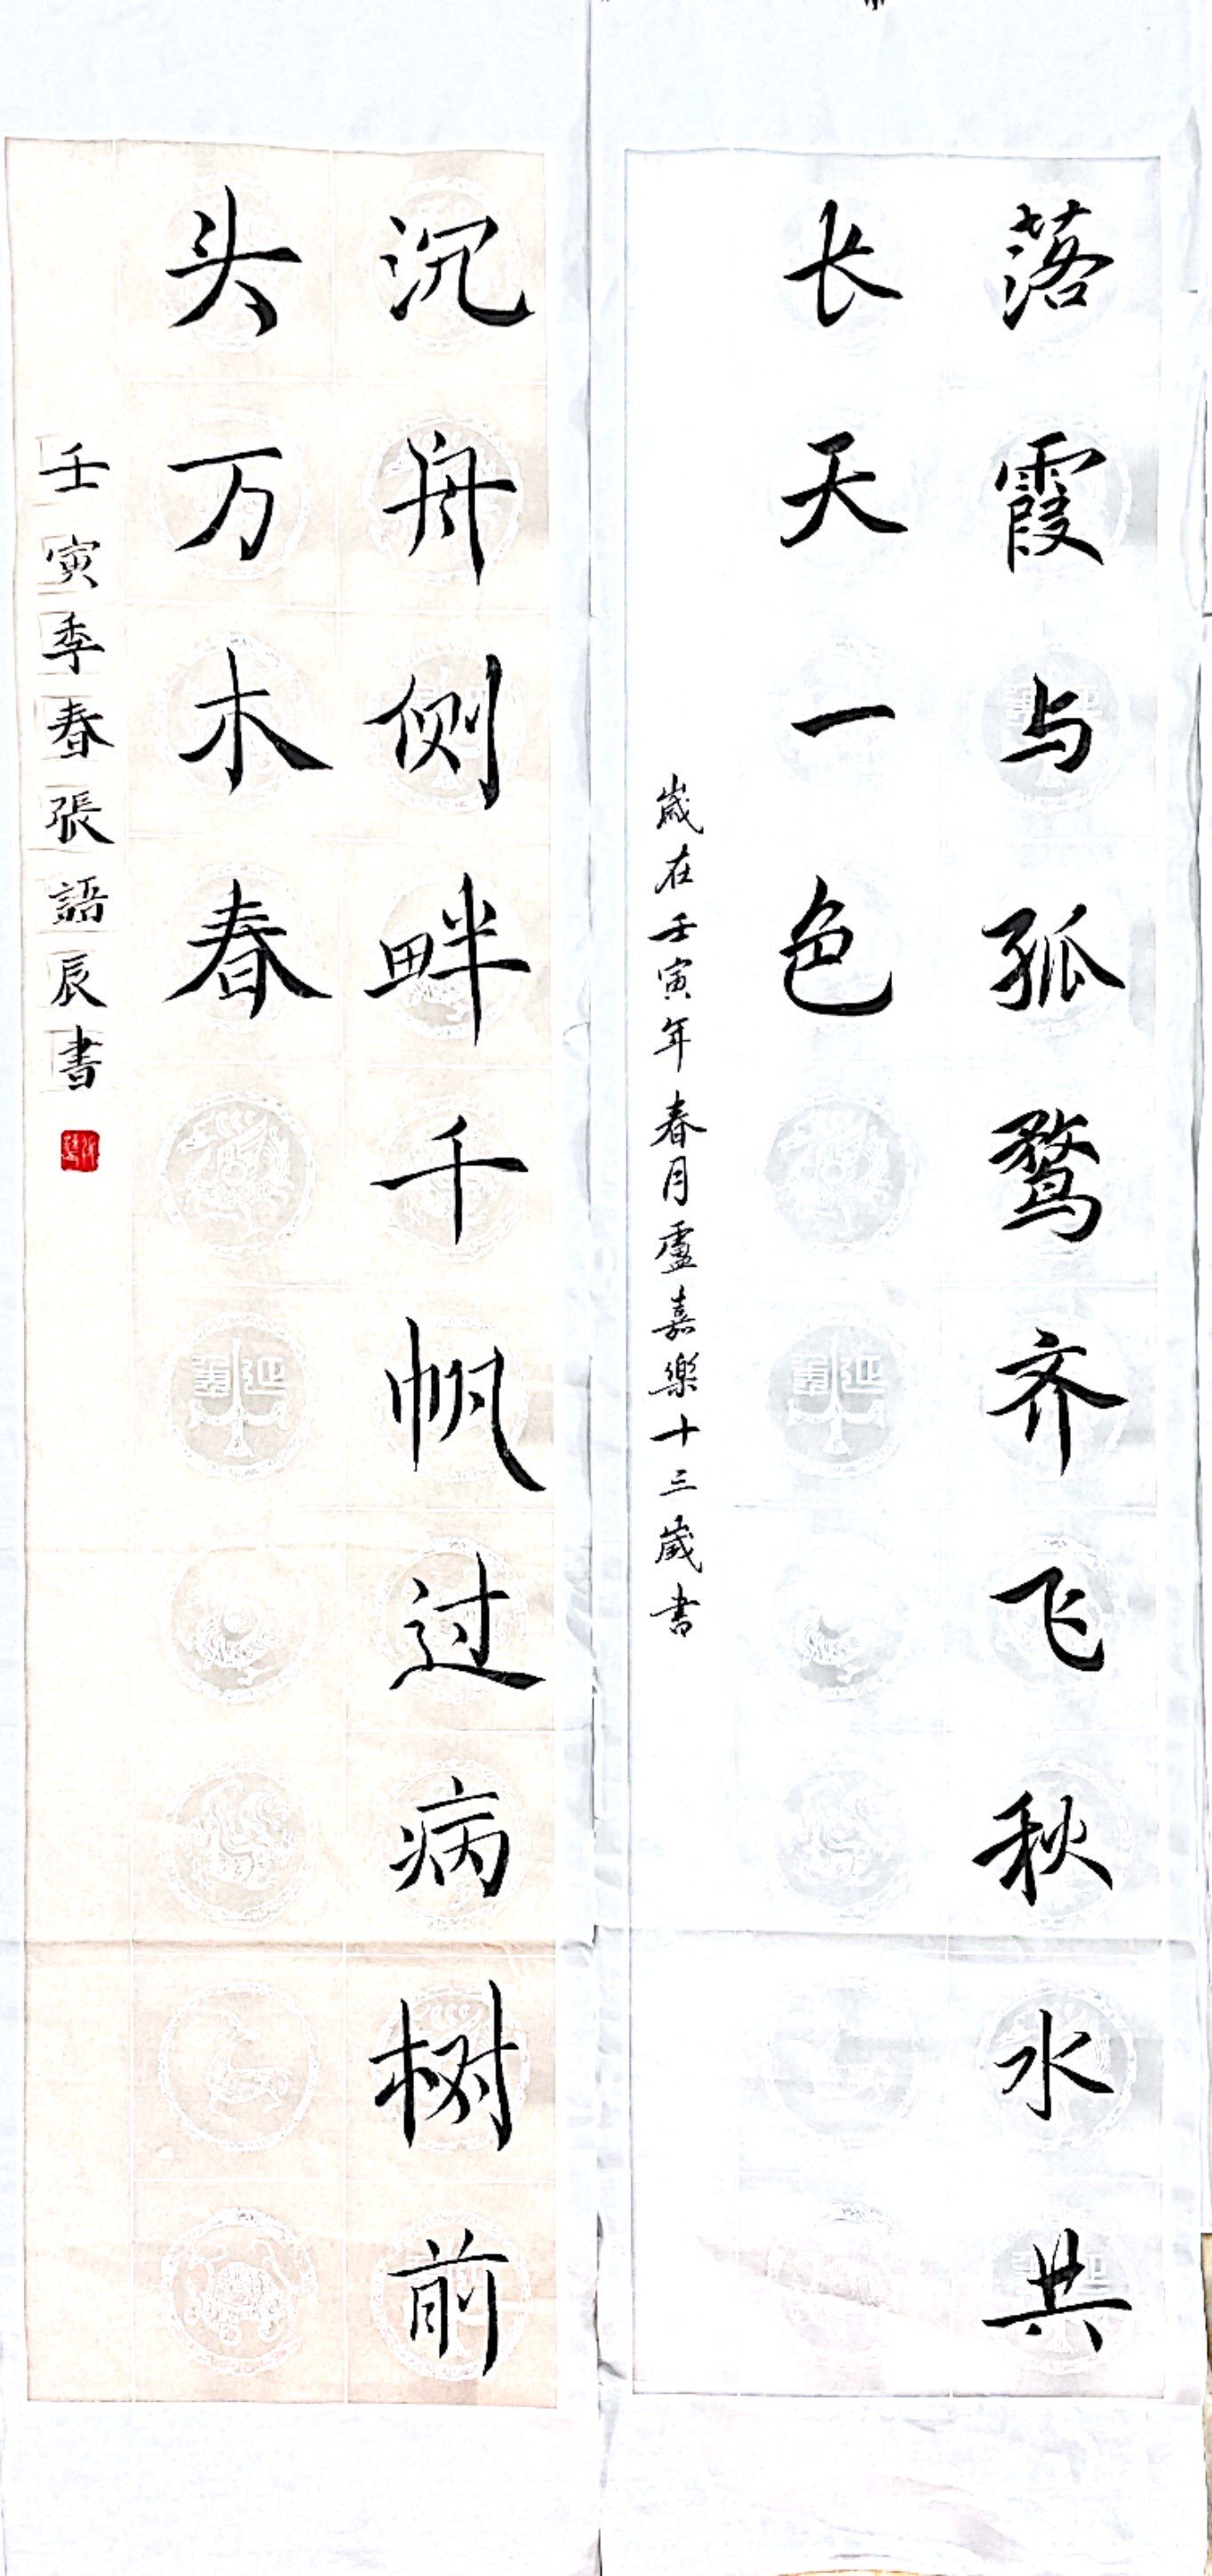 落霞与孤鹜齐飞秋水共
长天一色
歲在壬寅年春月盧嘉樂十三歲书
沉舟侧畔千帆过病树前
头万木春
壬寅季春張語辰書